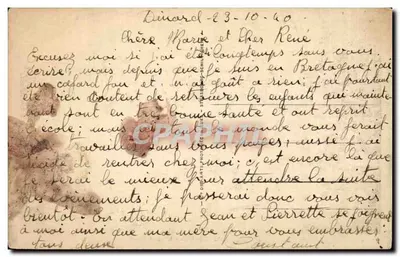 Dinard - 23-10-40
Chère Marie et Cher René
Excusez moi si j'ai été longtemps sans vous
écrire, mais depuis que je suis en Bretagne j'ai
un cafard fou et n'ai goût a rien; j'ai pourtant
été bien contente de retrouver les enfants qui mainte
nant sont en très bonne santé et ont reprit
l'école; mais monde vous ferait
travailler sans vous payer, aussi j'ai
hâte de rentrer chez moi; c'est encore là que
je serai le mieux pour attendre la suite
des évènements; je passerai donc vous voir
bientôt. En attendant Jean et Pierrette se joignent
à moi ainsi que ma mère pour vous embrasser
tous deux. Constant